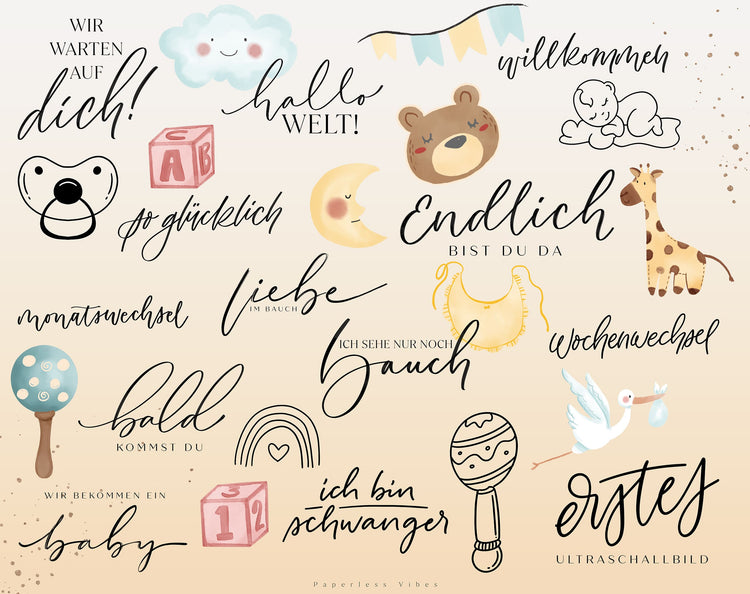 WIR
WARTEN
AUF
dich!
hallo
WELT!
willkommen
C
A B
so glücklich
Endlich
BIST DU DA
monatswechsel
liebe
IM BAUCH
ICH SEHE NUR NOCH
bauch
Wochenwechsel
bald
KOMMST DU
WIR BEKOMMEN EIN
baby
3
1 2
ich bin
schwanger
erstes
ULTRASCHALLBILD
Paperless Vibes